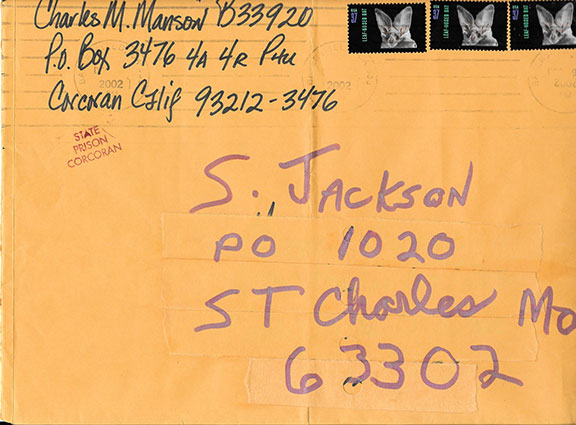 Charles M. Manson B33920
P.O. Box 3476 4A 4R PHU
Corcoran Calif 93212-3476
37
LEAF-NOSED BAT
37
LEAF-NOSED BAT
37
LEAF-NOSED BAT
2002
2002
STATE
PRISON
CORCORAN
S. JACKSON
PO 1020
ST Charles Mo
63302